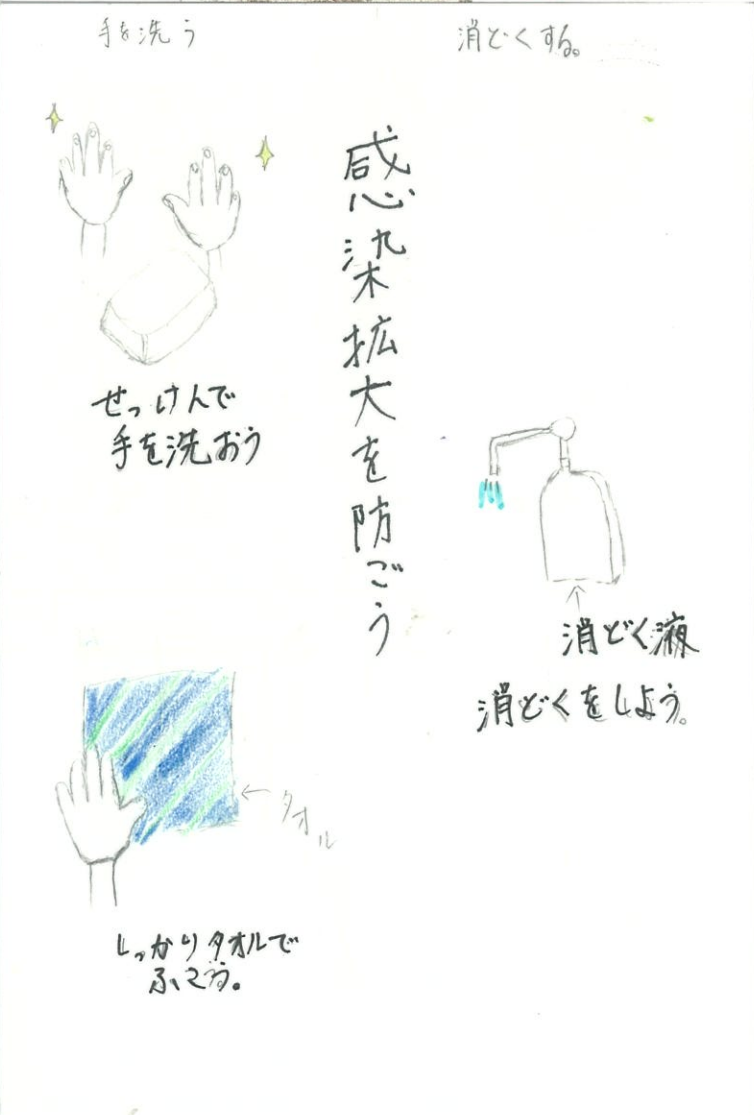 手を洗う
消どくする。
感染拡大を防ごう
せっけんで
手を洗おう
消どく液
消どくをしよう。
タオル
しっかりタオルで
ふこう。